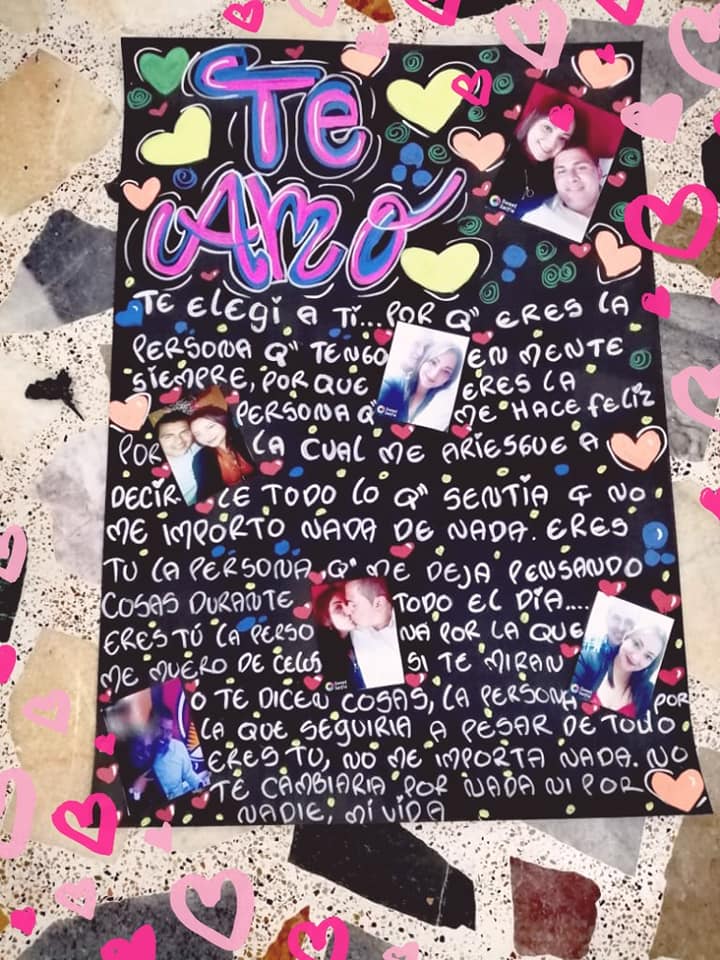 Te
Amo
TE ELEGI A TI... POR Q" ERES LA
PERSONA Q" TENGO EN MENTE
SIEMPRE, POR QUE ERES LA
PERSONA Q" ME HACE FELIZ
POR LA CUAL ME ARIESGUE A
DECIR-LE TODO LO Q" SENTIA & NO
ME IMPORTO NADA DE NADA. ERES
TU LA PERSONA Q" ME DEJA PENSANDO
COSAS DURANTE TODO EL DÍA....
ERES TÚ LA PERSONA POR LA QUE
ME MUERO DE CELOS SI TE MIRAN
O TE DICEN COSAS, LA PERSONA POR
LA QUE SEGUIRIA A PESAR DE TODO
ERES TU, NO ME IMPORTA NADA. NO
TE CAMBIARIA POR NADA NI POR
NADIE, MI VIDA
Sweet Selfie
Sweet Selfie
Sweet Selfie
Sweet Selfie